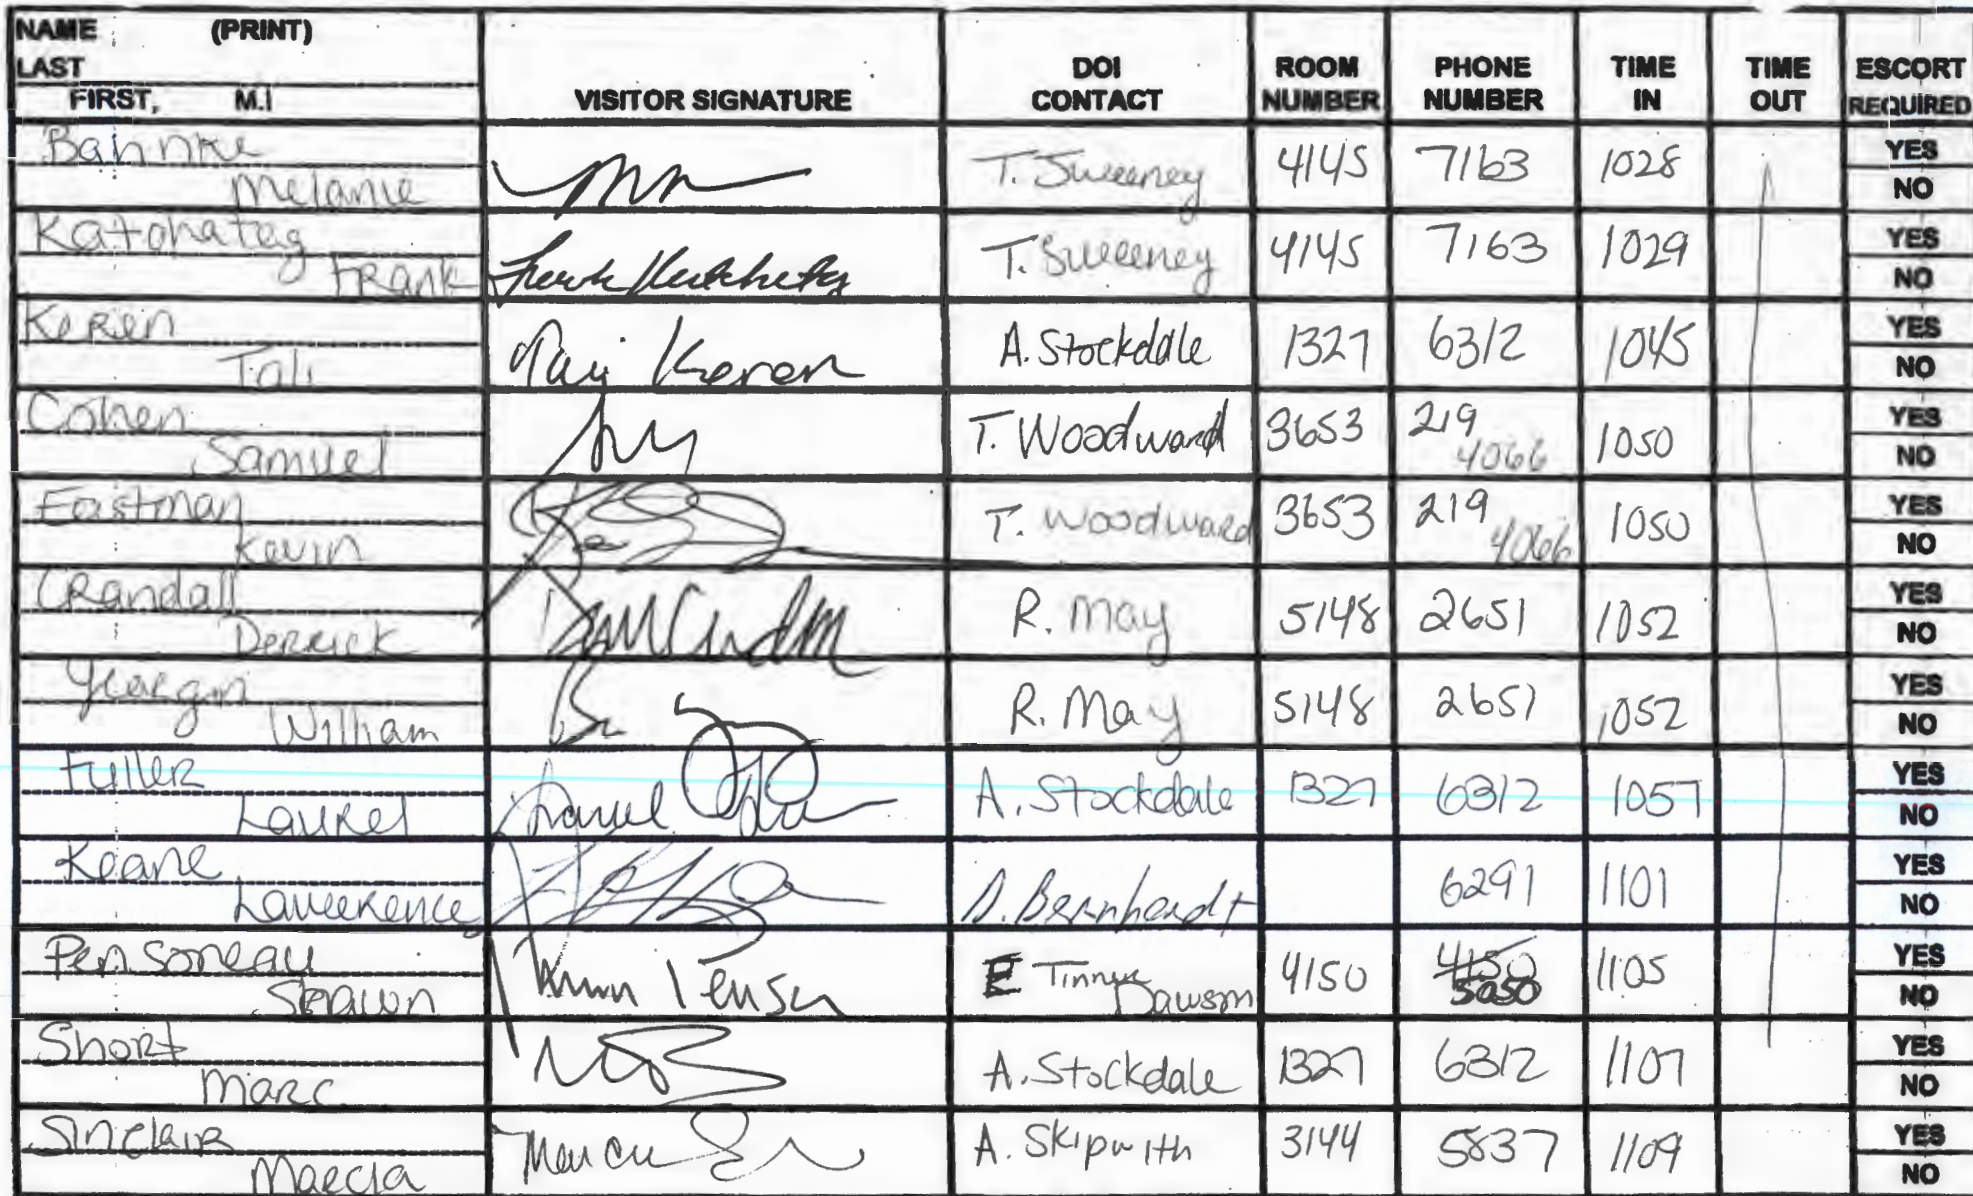 NAME (PRINT)
LAST
FIRST, M.I
VISITOR SIGNATURE
DOI CONTACT
ROOM NUMBER
PHONE NUMBER
TIME IN
TIME OUT
ESCORT REQUIRED
Bahnke
Melanie
T. Sweeney 4145 7163 1028 YES
NO
Katchatag
Frank
T. Sweeney 4145 7163 1029 YES
NO
Keren
Tali
Keren A. Stockdale 1327 6312 1045 YES
NO
Cohen
Samuel
T. Woodward 3653 219 4066 1050 YES
NO
Eastman
Kevin
T. Woodward 3653 219 4066 1050 YES
NO
CRandall
Derrick
R. May 5148 2651 1052 YES
NO
Yeargin
William
R. May 5148 2651 1052 YES
NO
Fuller
Laurel
Laurel A. Stockdale 1327 6312 1057 YES
NO
Keane
Lawerence
D. Bernhardt 6291 1101 YES
NO
Pensoneau
Shawn
E Tinner Dawson 4150 4150 5050 1105 YES
NO
Short
Marc
A. Stockdale 1327 6312 1107 YES
NO
Sinclair
Marcia
A. Skipwith 3144 5837 1109 YES
NO